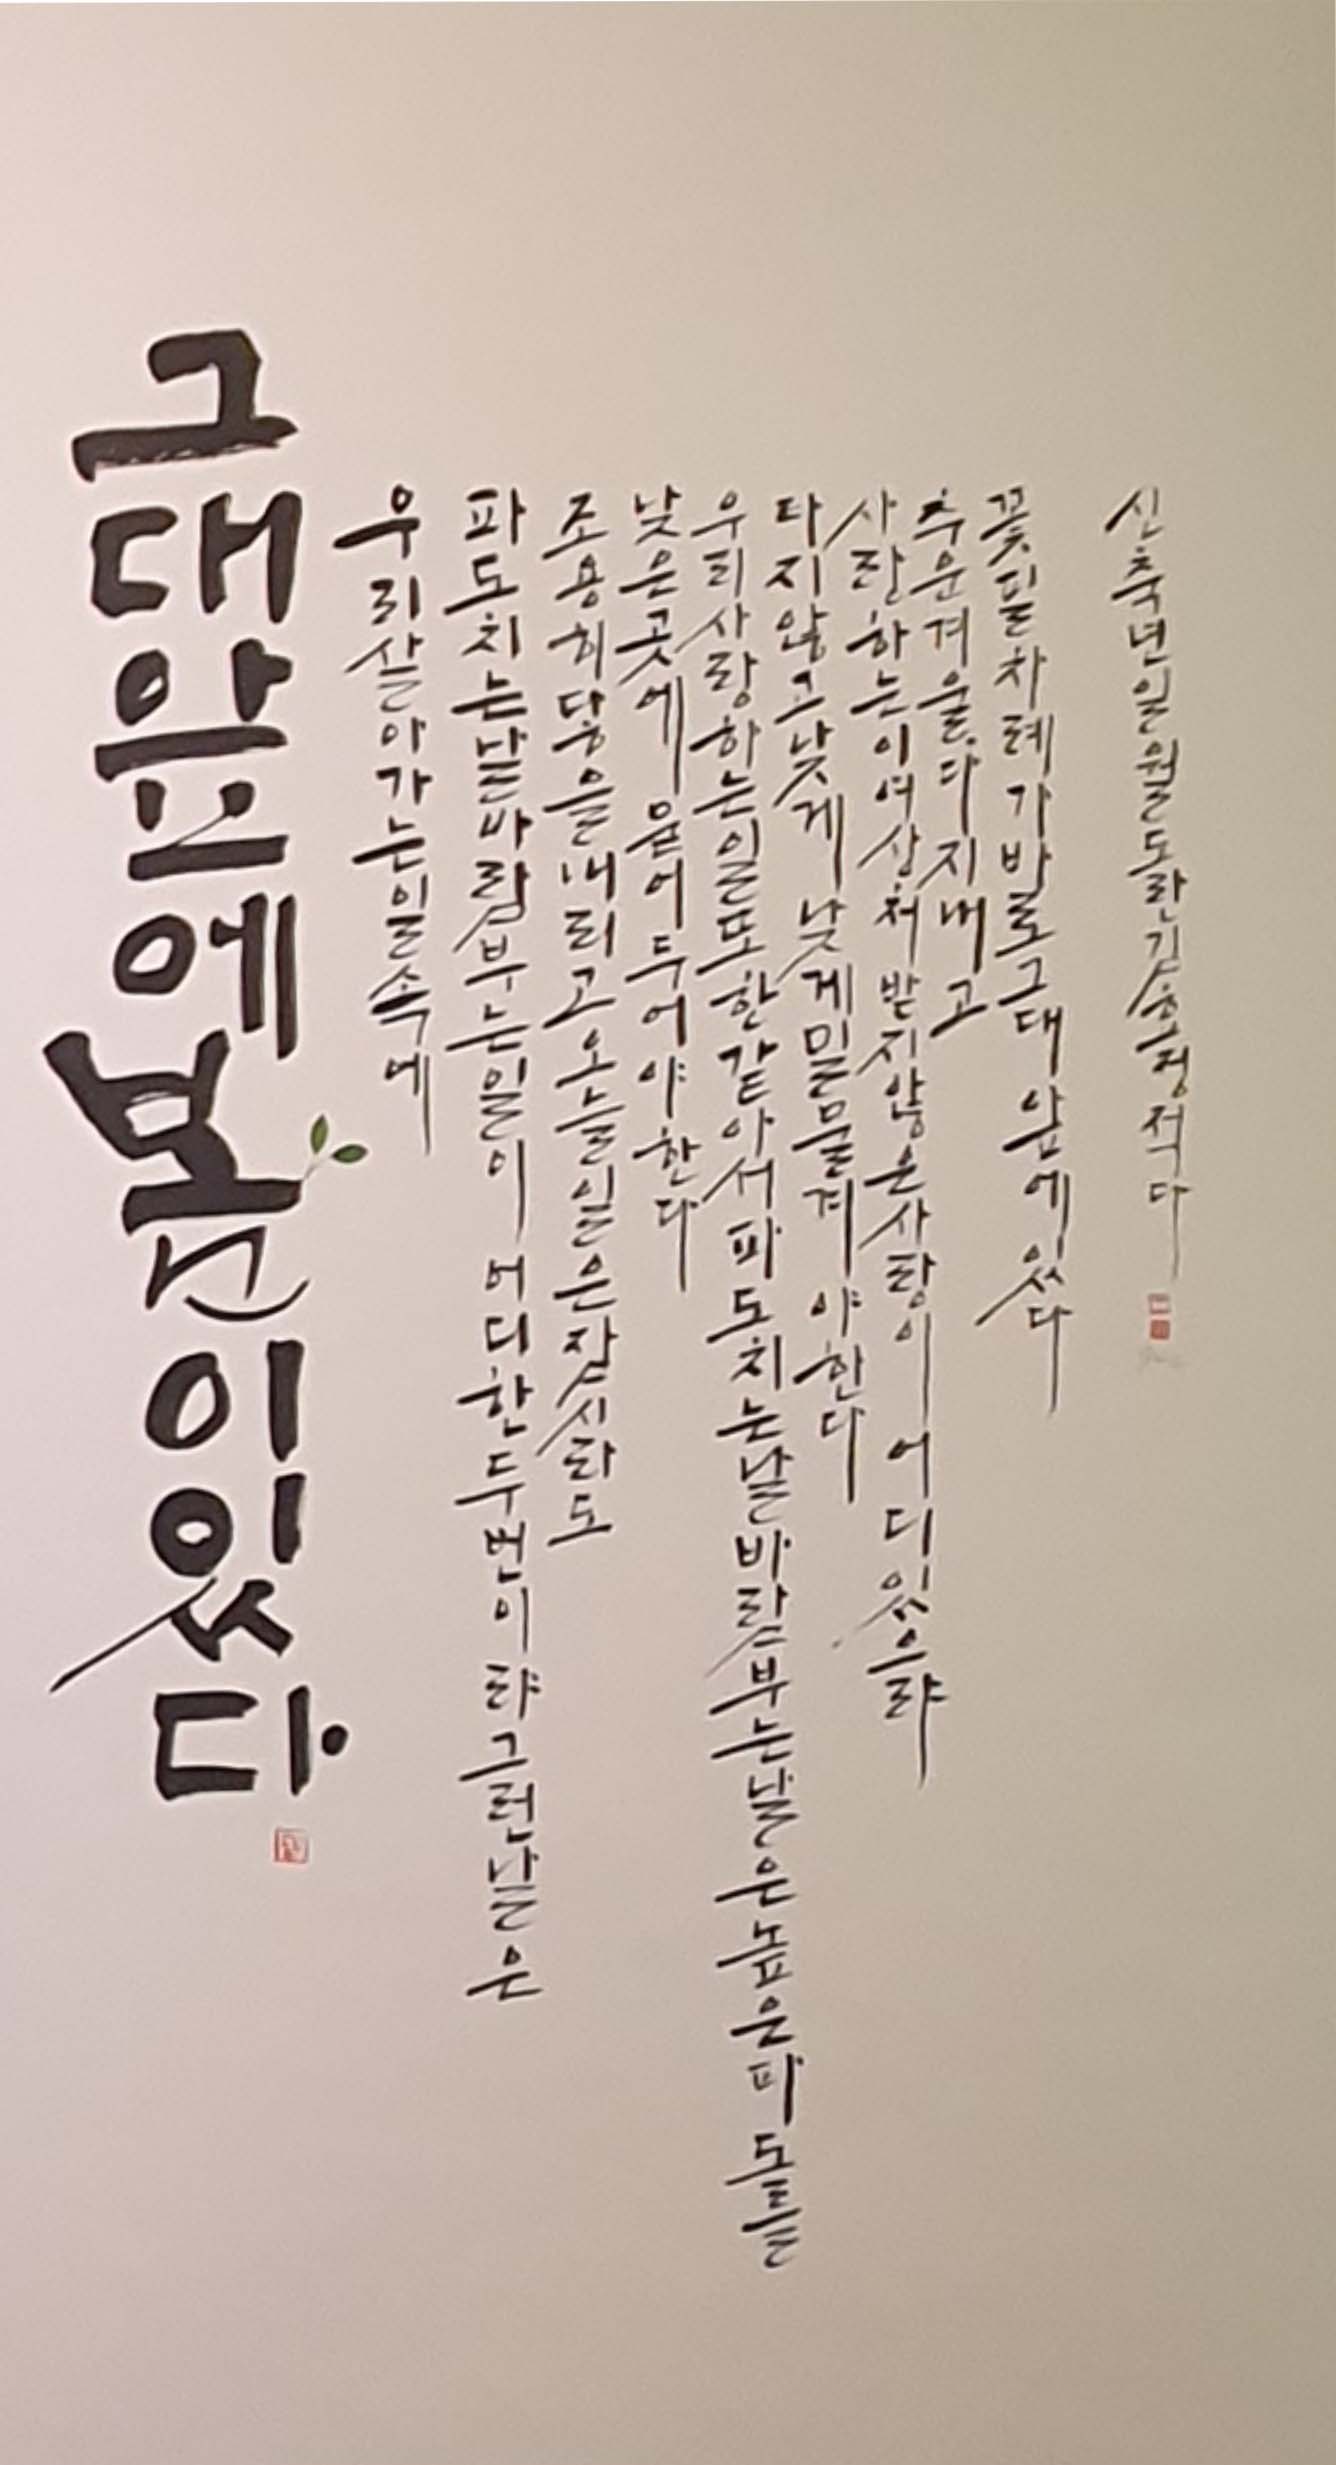 그대앞에봄이있다
우리살아가는일속에
파도치는날바람부는일이 어디한두번이랴그런날은
조용히닻을내리고오늘일은잠시라도
낮은곳에 묻어두어야한다
우리사랑하는일또한같아서파도치는날바람부는날은높은파도를
타지않고낮게낮게밀물져야한다
사랑하는이여상처받지않은사랑이 어디있으랴
추운겨울다지내고
꽃필차례가바로그대앞에있다
신축년일월도란김 적다